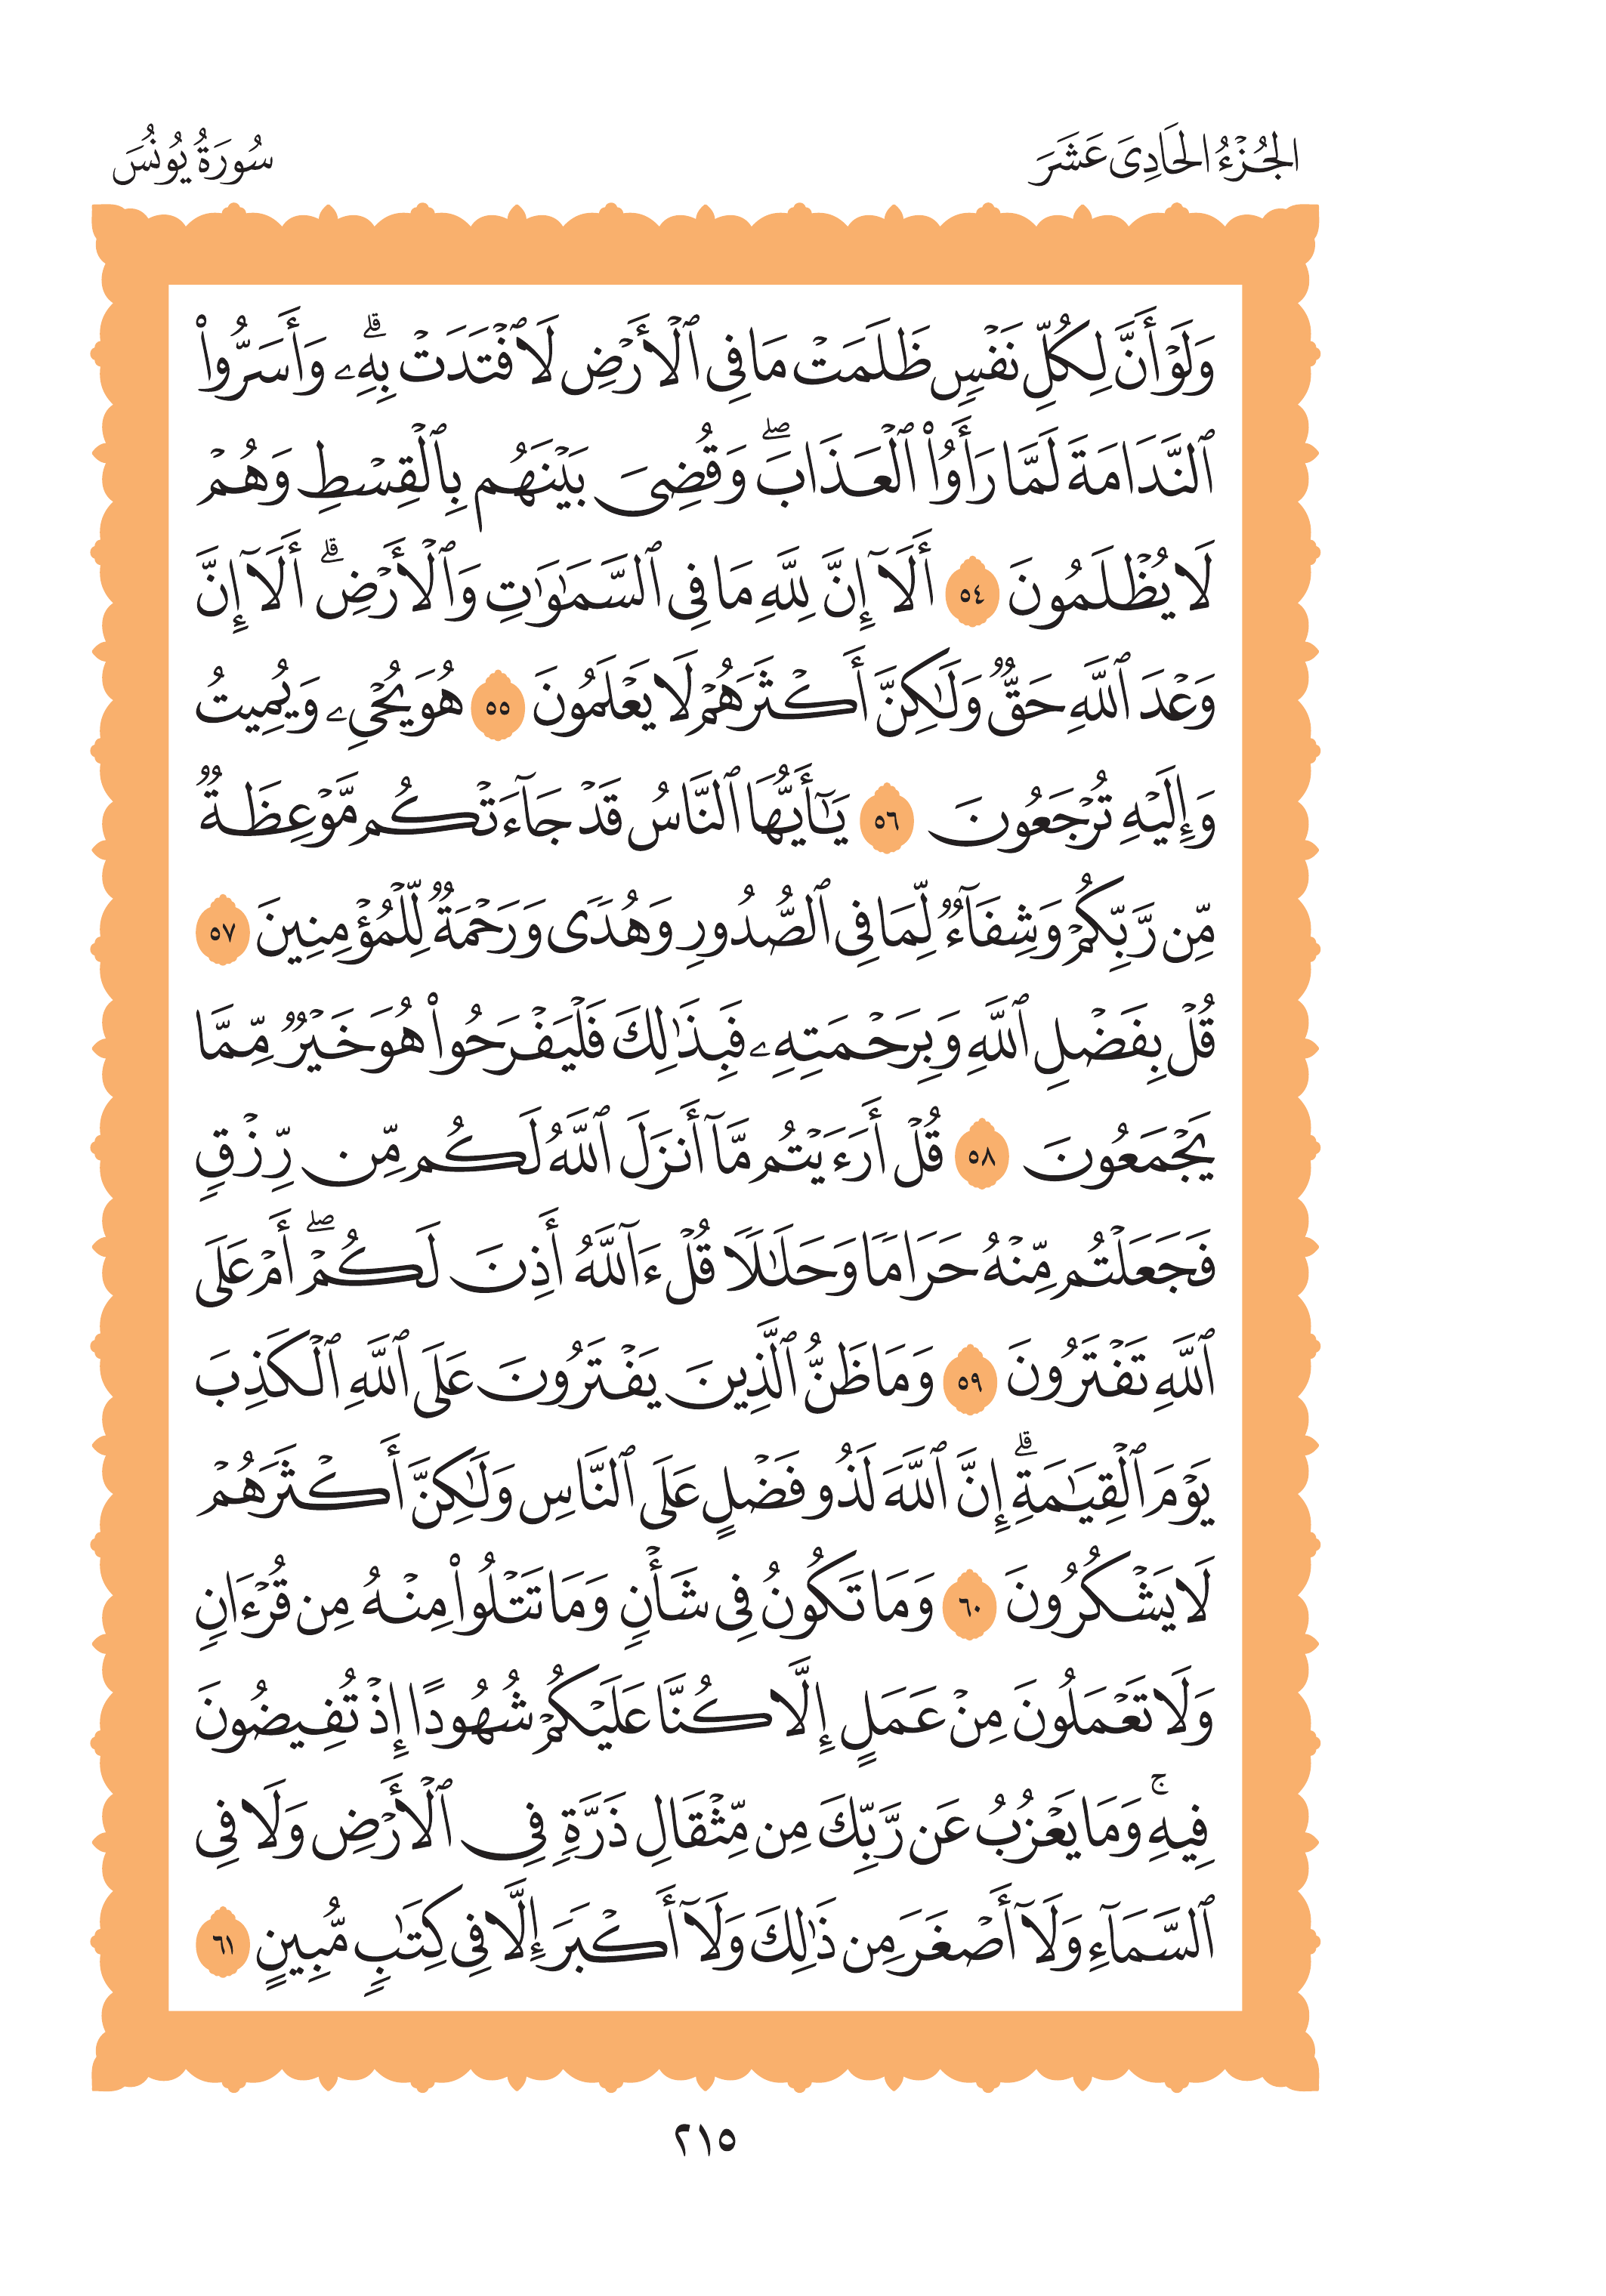 الجُزْءُ الحَادِيَ عَشَرَ
سُورَةُ يُونُسَ
وَلَوۡ أَنَّ لِكُلِّ نَفۡسٖ ظَلَمَتۡ مَا فِي ٱلۡأَرۡضِ لَٱفۡتَدَتۡ بِهِۦۗ وَأَسَرُّواْ
ٱلنَّدَامَةَ لَمَّا رَأَوُاْ ٱلۡعَذَابَۖ وَقُضِيَ بَيۡنَهُم بِٱلۡقِسۡطِ وَهُمۡ
لَا يُظۡلَمُونَ ٥٤ أَلَآ إِنَّ لِلَّهِ مَا فِي ٱلسَّمَٰوَٰتِ وَٱلۡأَرۡضِۗ أَلَآ إِنَّ
وَعۡدَ ٱللَّهِ حَقّٞ وَلَٰكِنَّ أَكۡثَرَهُمۡ لَا يَعۡلَمُونَ ٥٥ هُوَ يُحۡيِۦ وَيُمِيتُ
وَإِلَيۡهِ تُرۡجَعُونَ ٥٦ يَٰٓأَيُّهَا ٱلنَّاسُ قَدۡ جَآءَتۡكُم مَّوۡعِظَةٞ
مِّن رَّبِّكُمۡ وَشِفَآءٞ لِّمَا فِي ٱلصُّدُورِ وَهُدٗى وَرَحۡمَةٞ لِّلۡمُؤۡمِنِينَ ٥٧
قُلۡ بِفَضۡلِ ٱللَّهِ وَبِرَحۡمَتِهِۦ فَبِذَٰلِكَ فَلۡيَفۡرَحُواْ هُوَ خَيۡرٞ مِّمَّا
يَجۡمَعُونَ ٥٨ قُلۡ أَرَءَيۡتُم مَّآ أَنزَلَ ٱللَّهُ لَكُم مِّن رِّزۡقٖ
فَجَعَلۡتُم مِّنۡهُ حَرَامٗا وَحَلَٰلٗا قُلۡ ءَآللَّهُ أَذِنَ لَكُمۡۖ أَمۡ عَلَى
ٱللَّهِ تَفۡتَرُونَ ٥٩ وَمَا ظَنُّ ٱلَّذِينَ يَفۡتَرُونَ عَلَى ٱللَّهِ ٱلۡكَذِبَ
يَوۡمَ ٱلۡقِيَٰمَةِۗ إِنَّ ٱللَّهَ لَذُو فَضۡلٍ عَلَى ٱلنَّاسِ وَلَٰكِنَّ أَكۡثَرَهُمۡ
لَا يَشۡكُرُونَ ٦٠ وَمَا تَكُونُ فِي شَأۡنٖ وَمَا تَتۡلُواْ مِنۡهُ مِن قُرۡءَانٖ
وَلَا تَعۡمَلُونَ مِنۡ عَمَلٍ إِلَّا كُنَّا عَلَيۡكُمۡ شُهُودًا إِذۡ تُفِيضُونَ
فِيهِۚ وَمَا يَعۡزُبُ عَن رَّبِّكَ مِن مِّثۡقَالِ ذَرَّةٖ فِي ٱلۡأَرۡضِ وَلَا فِي
ٱلسَّمَآءِ وَلَآ أَصۡغَرَ مِن ذَٰلِكَ وَلَآ أَكۡبَرَ إِلَّا فِي كِتَٰبٖ مُّبِينٍ ٦١
٢١٥